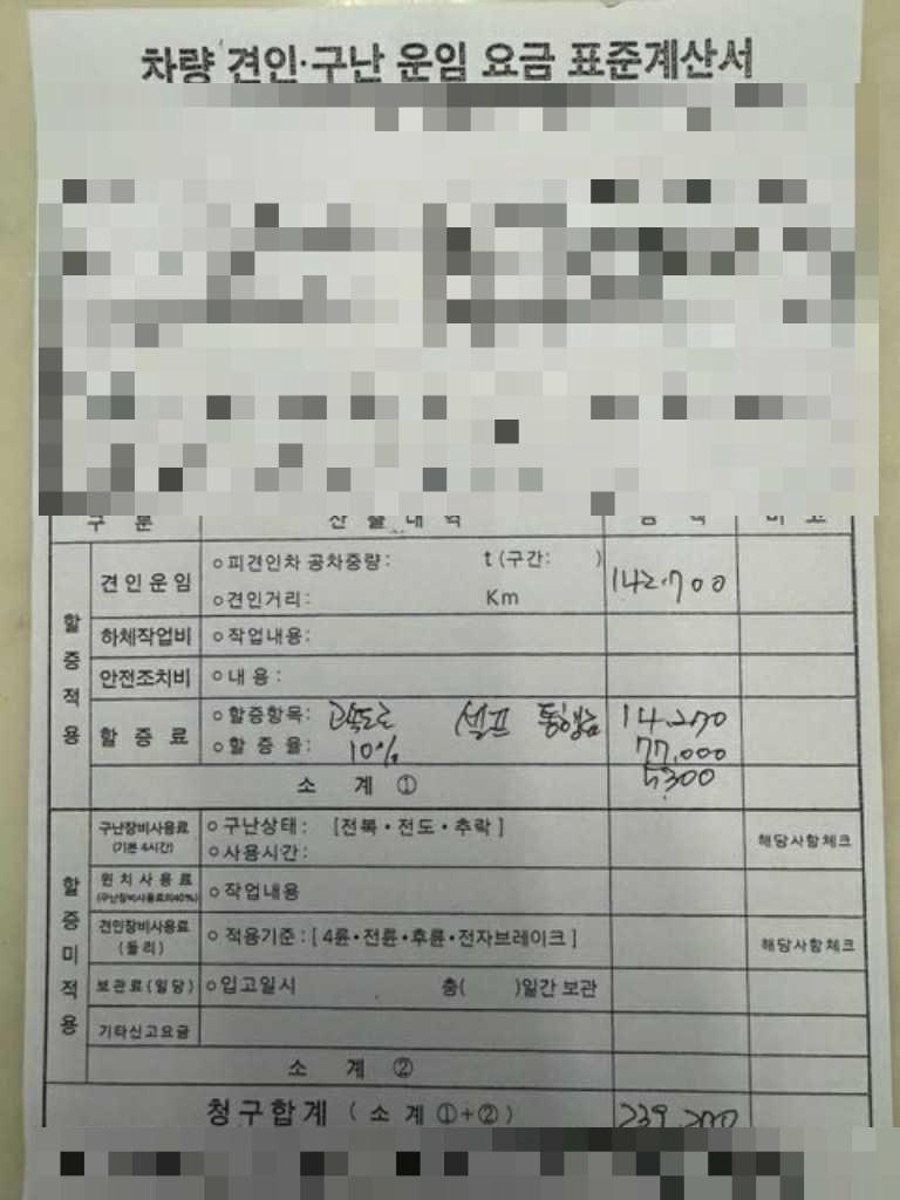 차량 견인·구난 운임 요금 표준계산서
구 분 산 출 내 역 금 액 비 고
할증적용
견인운임 ○피견인차 공차중량: t (구간: ) 142.700
○견인거리: Km
하체작업비 ○작업내용:
안전조치비 ○내 용:
할 증 료 ○할증항목: 고속도로 셀프 통행료 14.270
○할 증 율: 10% 77.000
소 계 ① 5.300
할증미적용
구난장비사용료 ○구난상태: [전복·전도·추락] 해당사항체크
(기본 4시간) ○사용시간:
윈치사용료 ○작업내용
(구난장비사용료의40%)
견인장비사용료 ○적용기준: [4륜·전륜·후륜·전자브레이크] 해당사항체크
(돌리)
보관료(일당) ○입고일시 총( )일간 보관
기타신고요금
소 계 ②
청구합계 (소 계 ①+②) 239.200